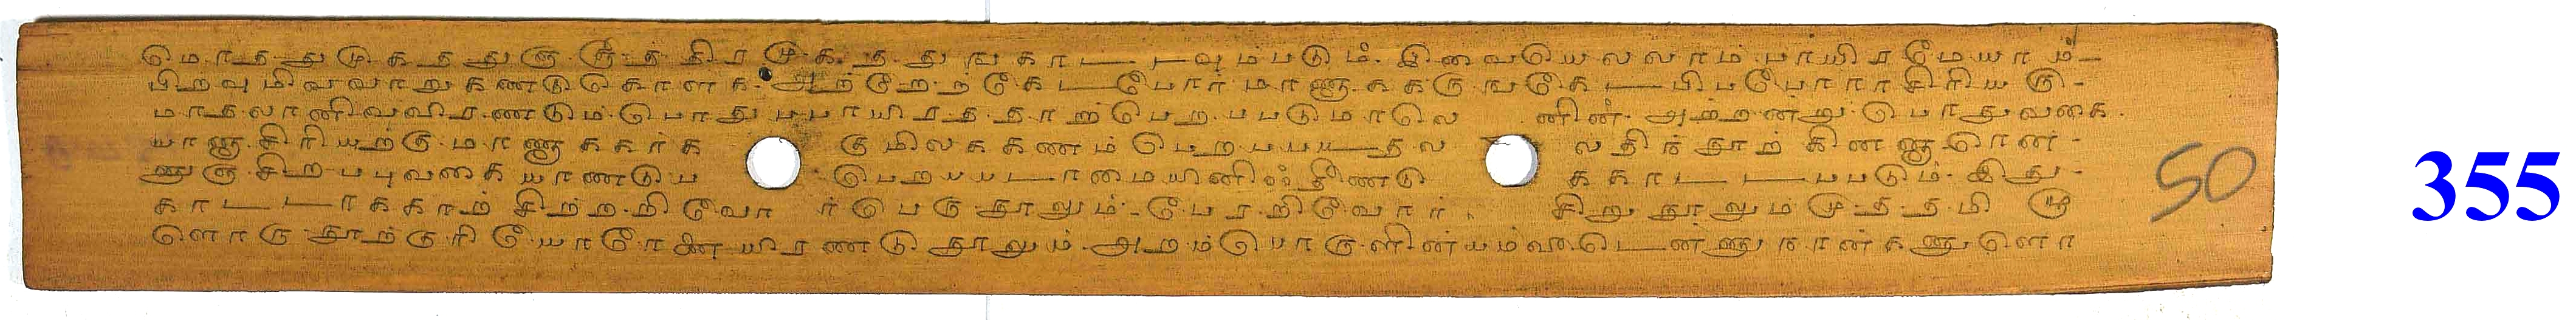 மொத்துமுகத்துஞ் சூத்திரமுகத்துங் காட்டவும்படும். இவையெல்லாம் பாயிரமேயாம்
பிறவு மிவ்வாறு கண்டுகொள்க. அற்றேற் கேட்போர் மாணாக்கருங் கேட்பிப்போராசிரியரு
மாதலானிவ்விரண்டும் பொதுப்பாயிரத்தாற் பெறப்படுமாலெ னின். அற்றன்று பொதுவகை
யானாசிரியற்கு மாணாக்கர்க் கு மிலக்கணம் பெறப்பட்டதல் லதிந்நூற் கின்னாரென்
னுஞ் சிறப்புவகை யாண்டுப் பெறப்படாமையினீண்டு க்காட்டப்படும். இது
காட்டாக்காற் சிற்றறிவோ ர் பெருநூலும். பேரறிவோர் சிறுநூலும் முத்தமி ழு
ளொருநூற்குரியோரேனையிரண்டு நூலும். அறம்பொருளின்பம்வீடென்னு நான்கனுளொ
50
355